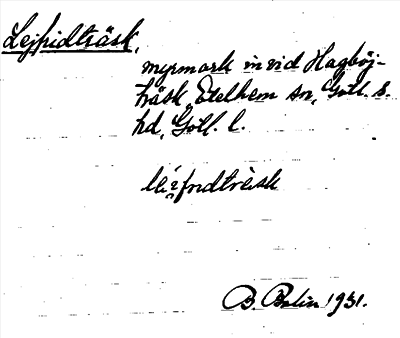 Lejfridträsk,
myrmark invid Hagböj-
träsk, Etelhem sn, Gotl. S.
hd, Gotl. l.
B. Bolin 1931.